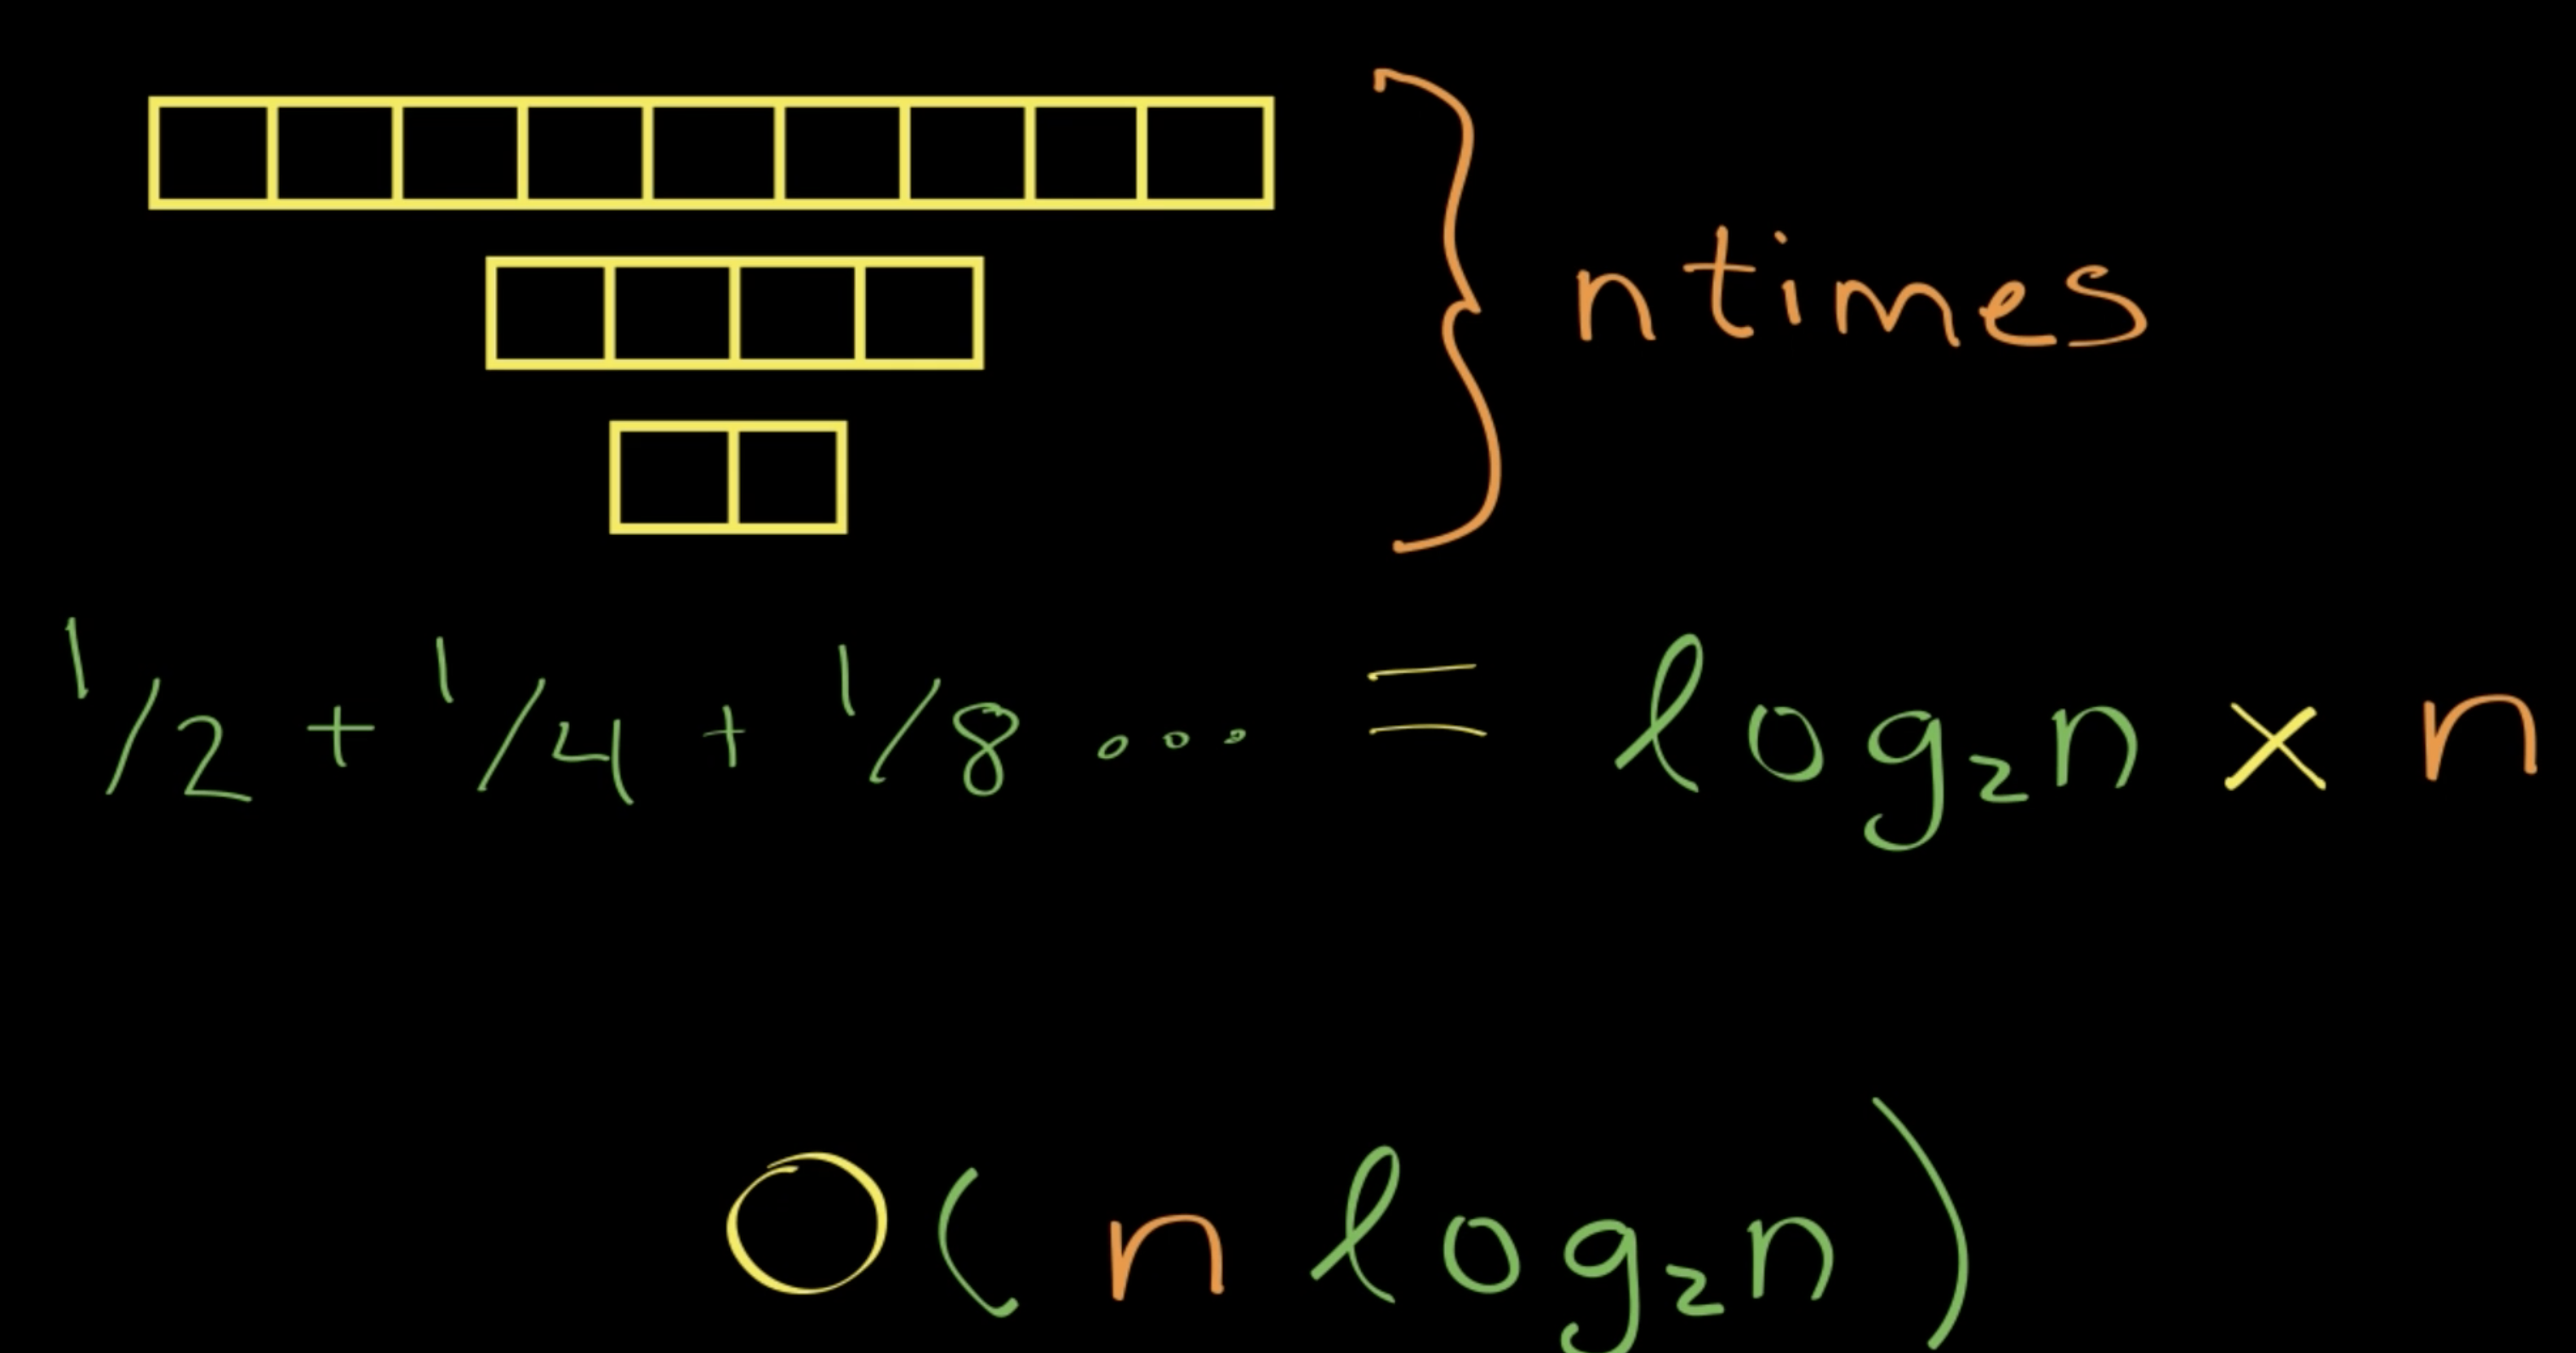 n times
1/2 + 1/4 + 1/8 ... = log₂n × n
O( n log₂n )